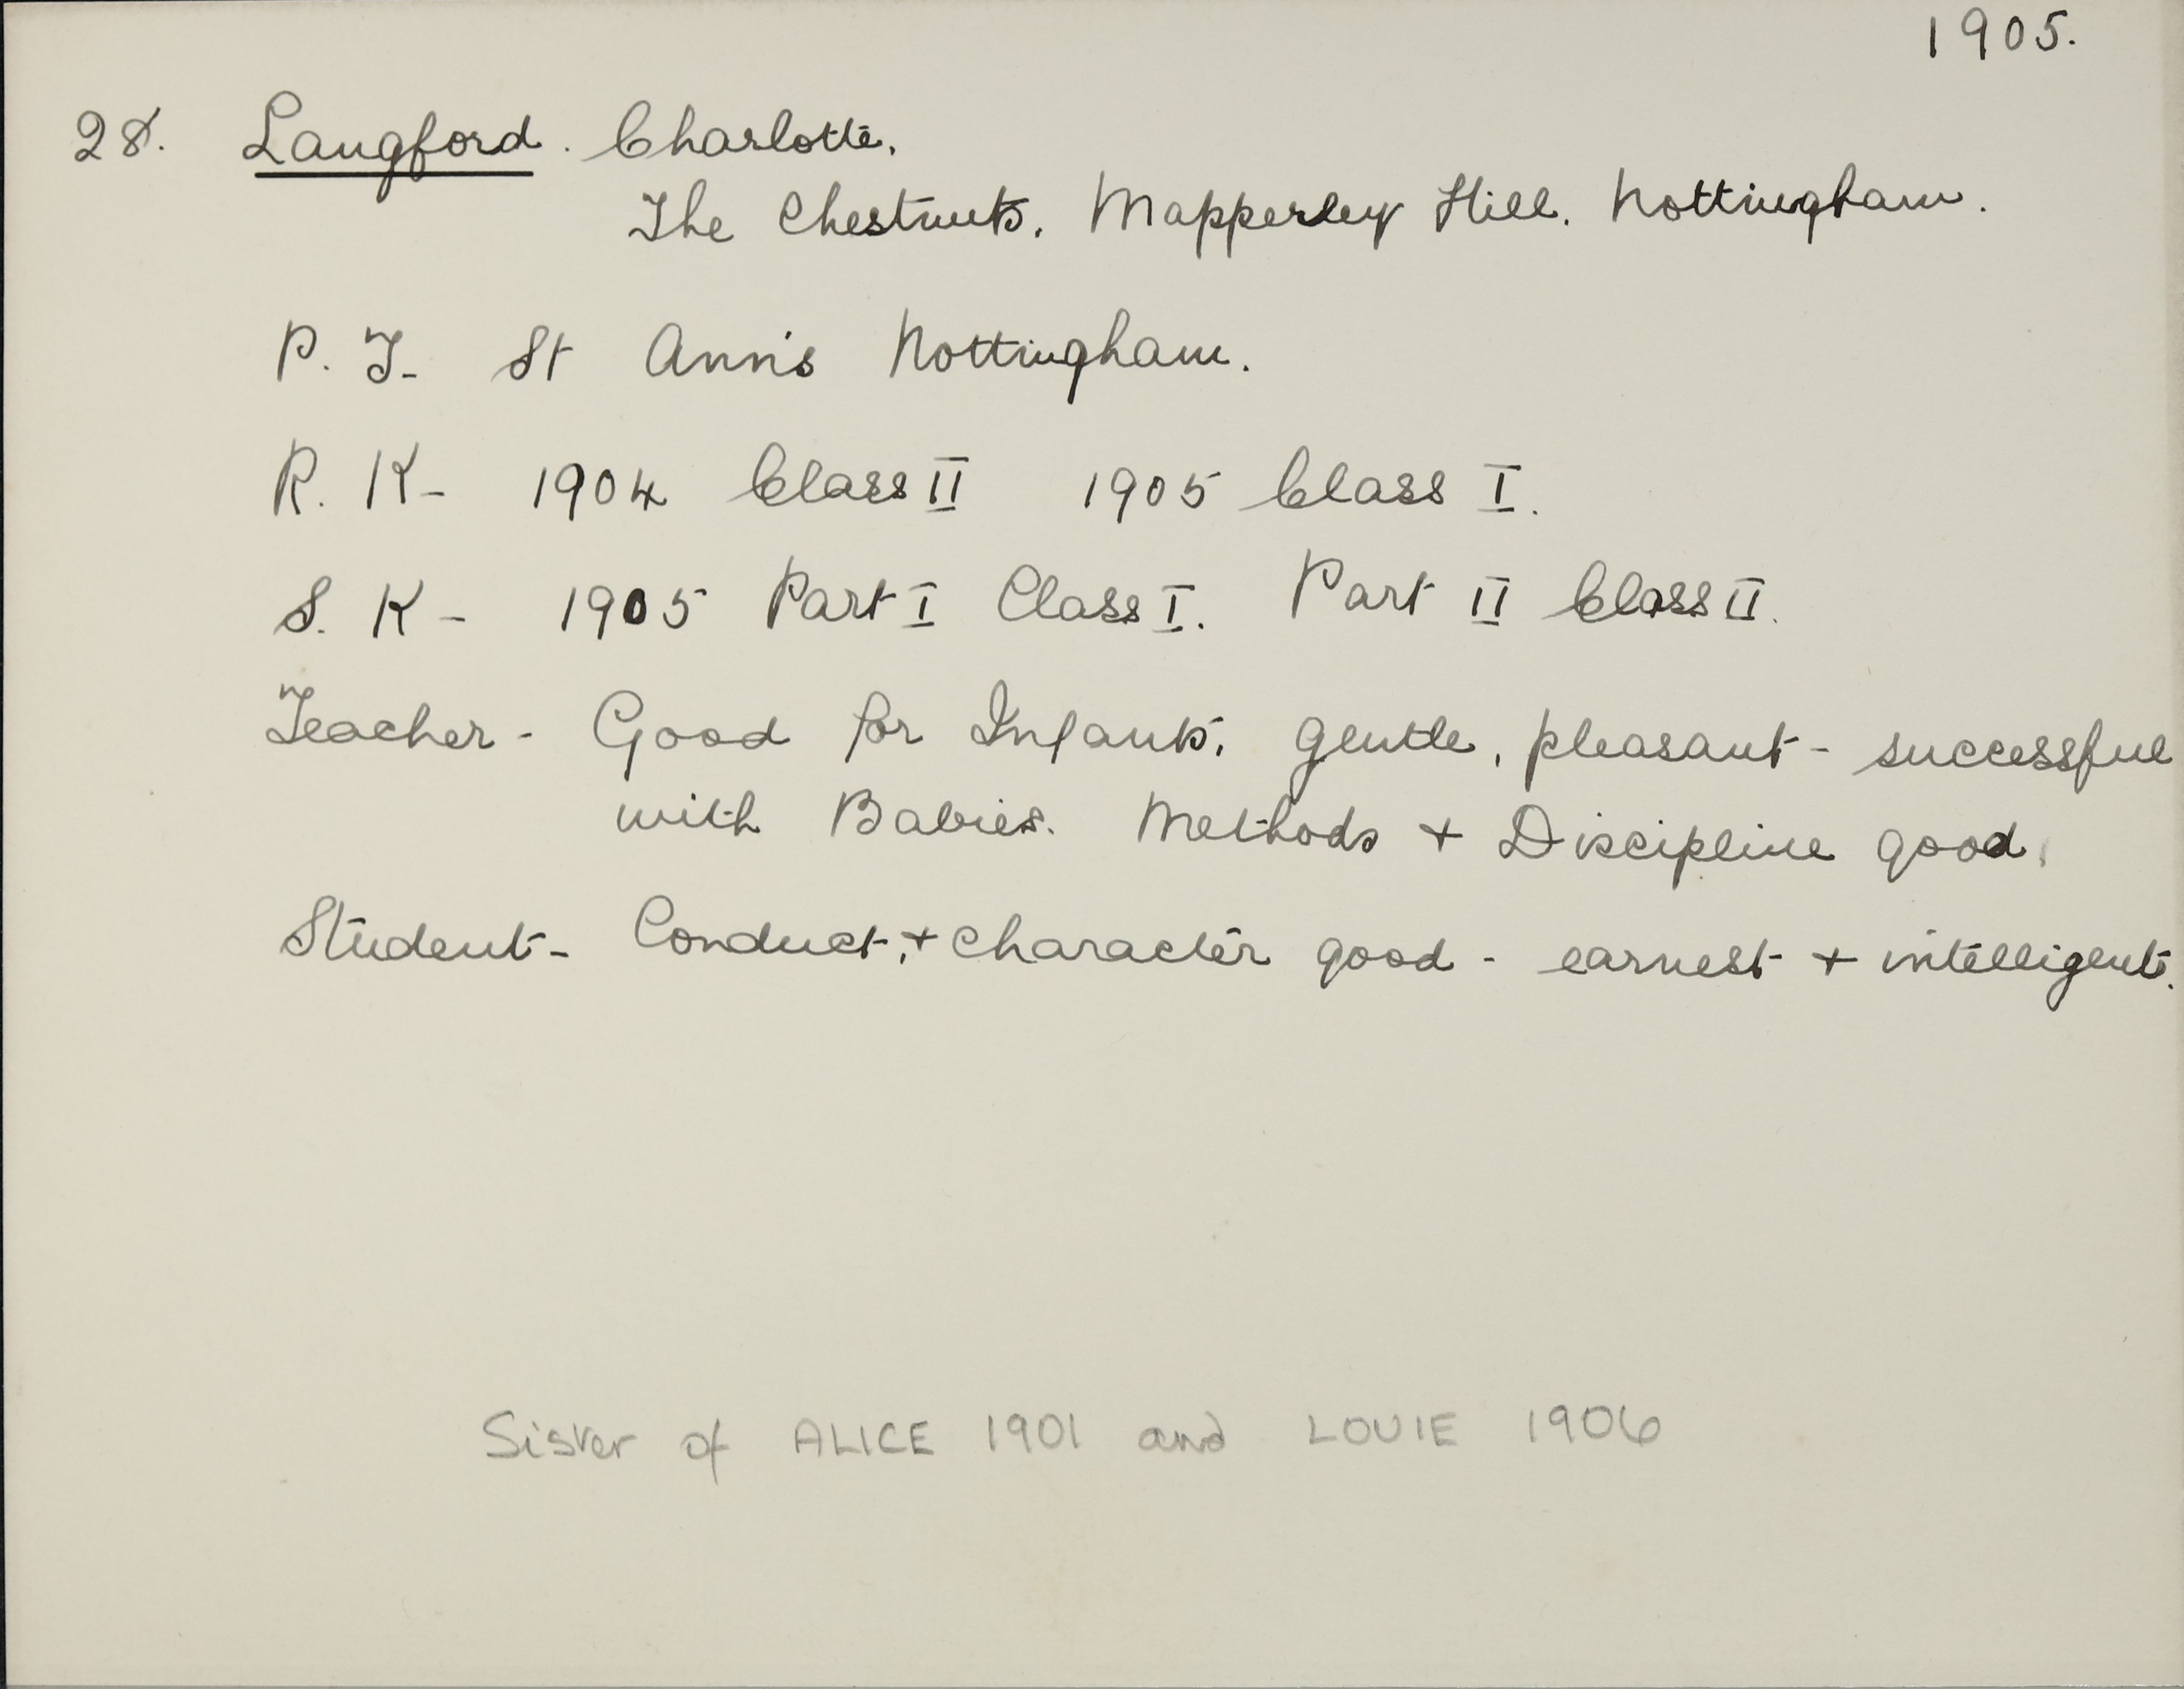 1905.
28. Langford. Charlotte.
The Chestnuts. Mapperley Hill. Nottingham.
P. T- St Ann's Nottingham.
R. K- 1904 Class II 1905 Class I.
S. K- 1905 Part I Class I. Part II Class II.
Teacher- Good for Infants. gentle, pleasant- successful
with Babies. Methods + Discipline good.
Student- Conduct, + character good - earnest + intelligent.
Sister of ALICE 1901 and LOUIE 1906